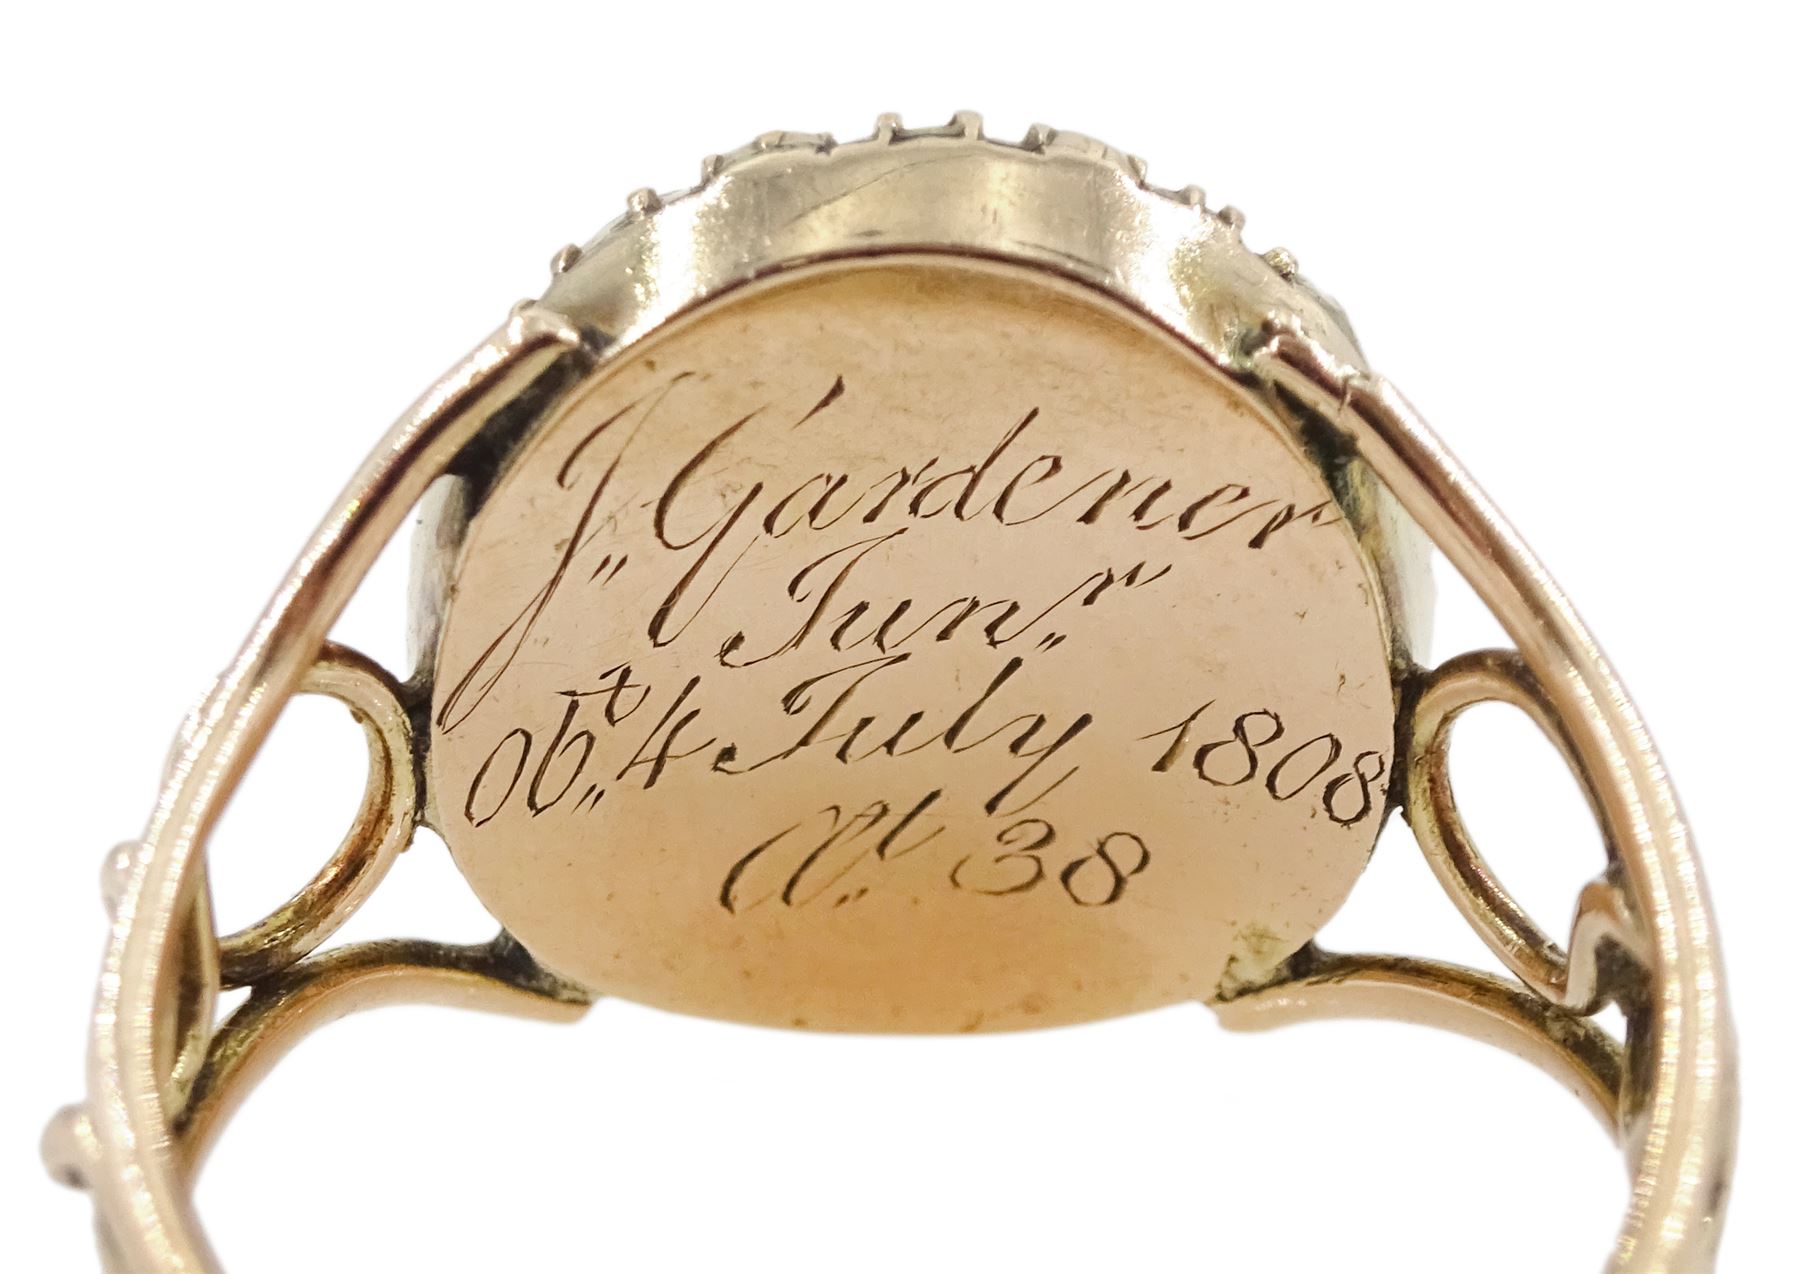 J,, Gardener
Jun,,r
Ob,,t 4 July 1808
Æ,,t 38